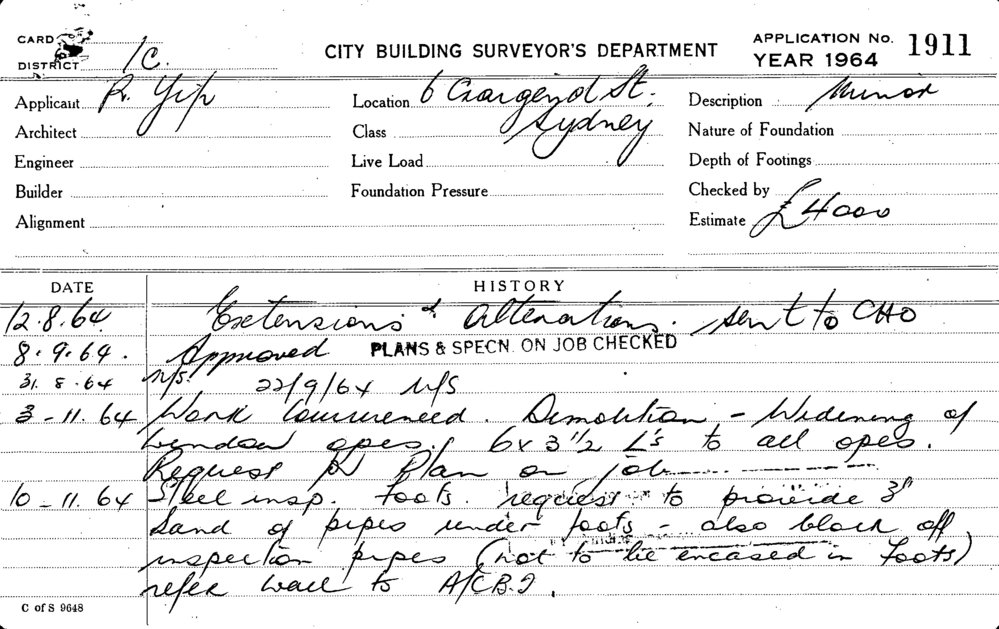 CARD
DISTRICT 1C.
CITY BUILDING SURVEYOR'S DEPARTMENT
APPLICATION No. 1911
YEAR 1964
Applicant R. Yip
Location 6 St.
Sydney
Description Minor
Architect
Class
Nature of Foundation
Engineer
Live Load
Depth of Footings
Builder
Foundation Pressure
Checked by
Alignment
Estimate £4000
DATE HISTORY
12.8.64 Extensions & Alterations. sent to CHO
8.9.64. Approved PLANS & SPECN. ON JOB CHECKED
31.8.64 N/S. 22/9/64 N/S
3-11.64 Work Commenced. Demolition - Widening of
window opes. 6x3½ L's to all opes.
Request for Plan on job
10-11.64 Steel insp. foots. request to provide 3"
sand of pipes under foots - also block off
inspection pipes (not to be encased in foots)
refer wall to A/CB.I.
C of S 9648